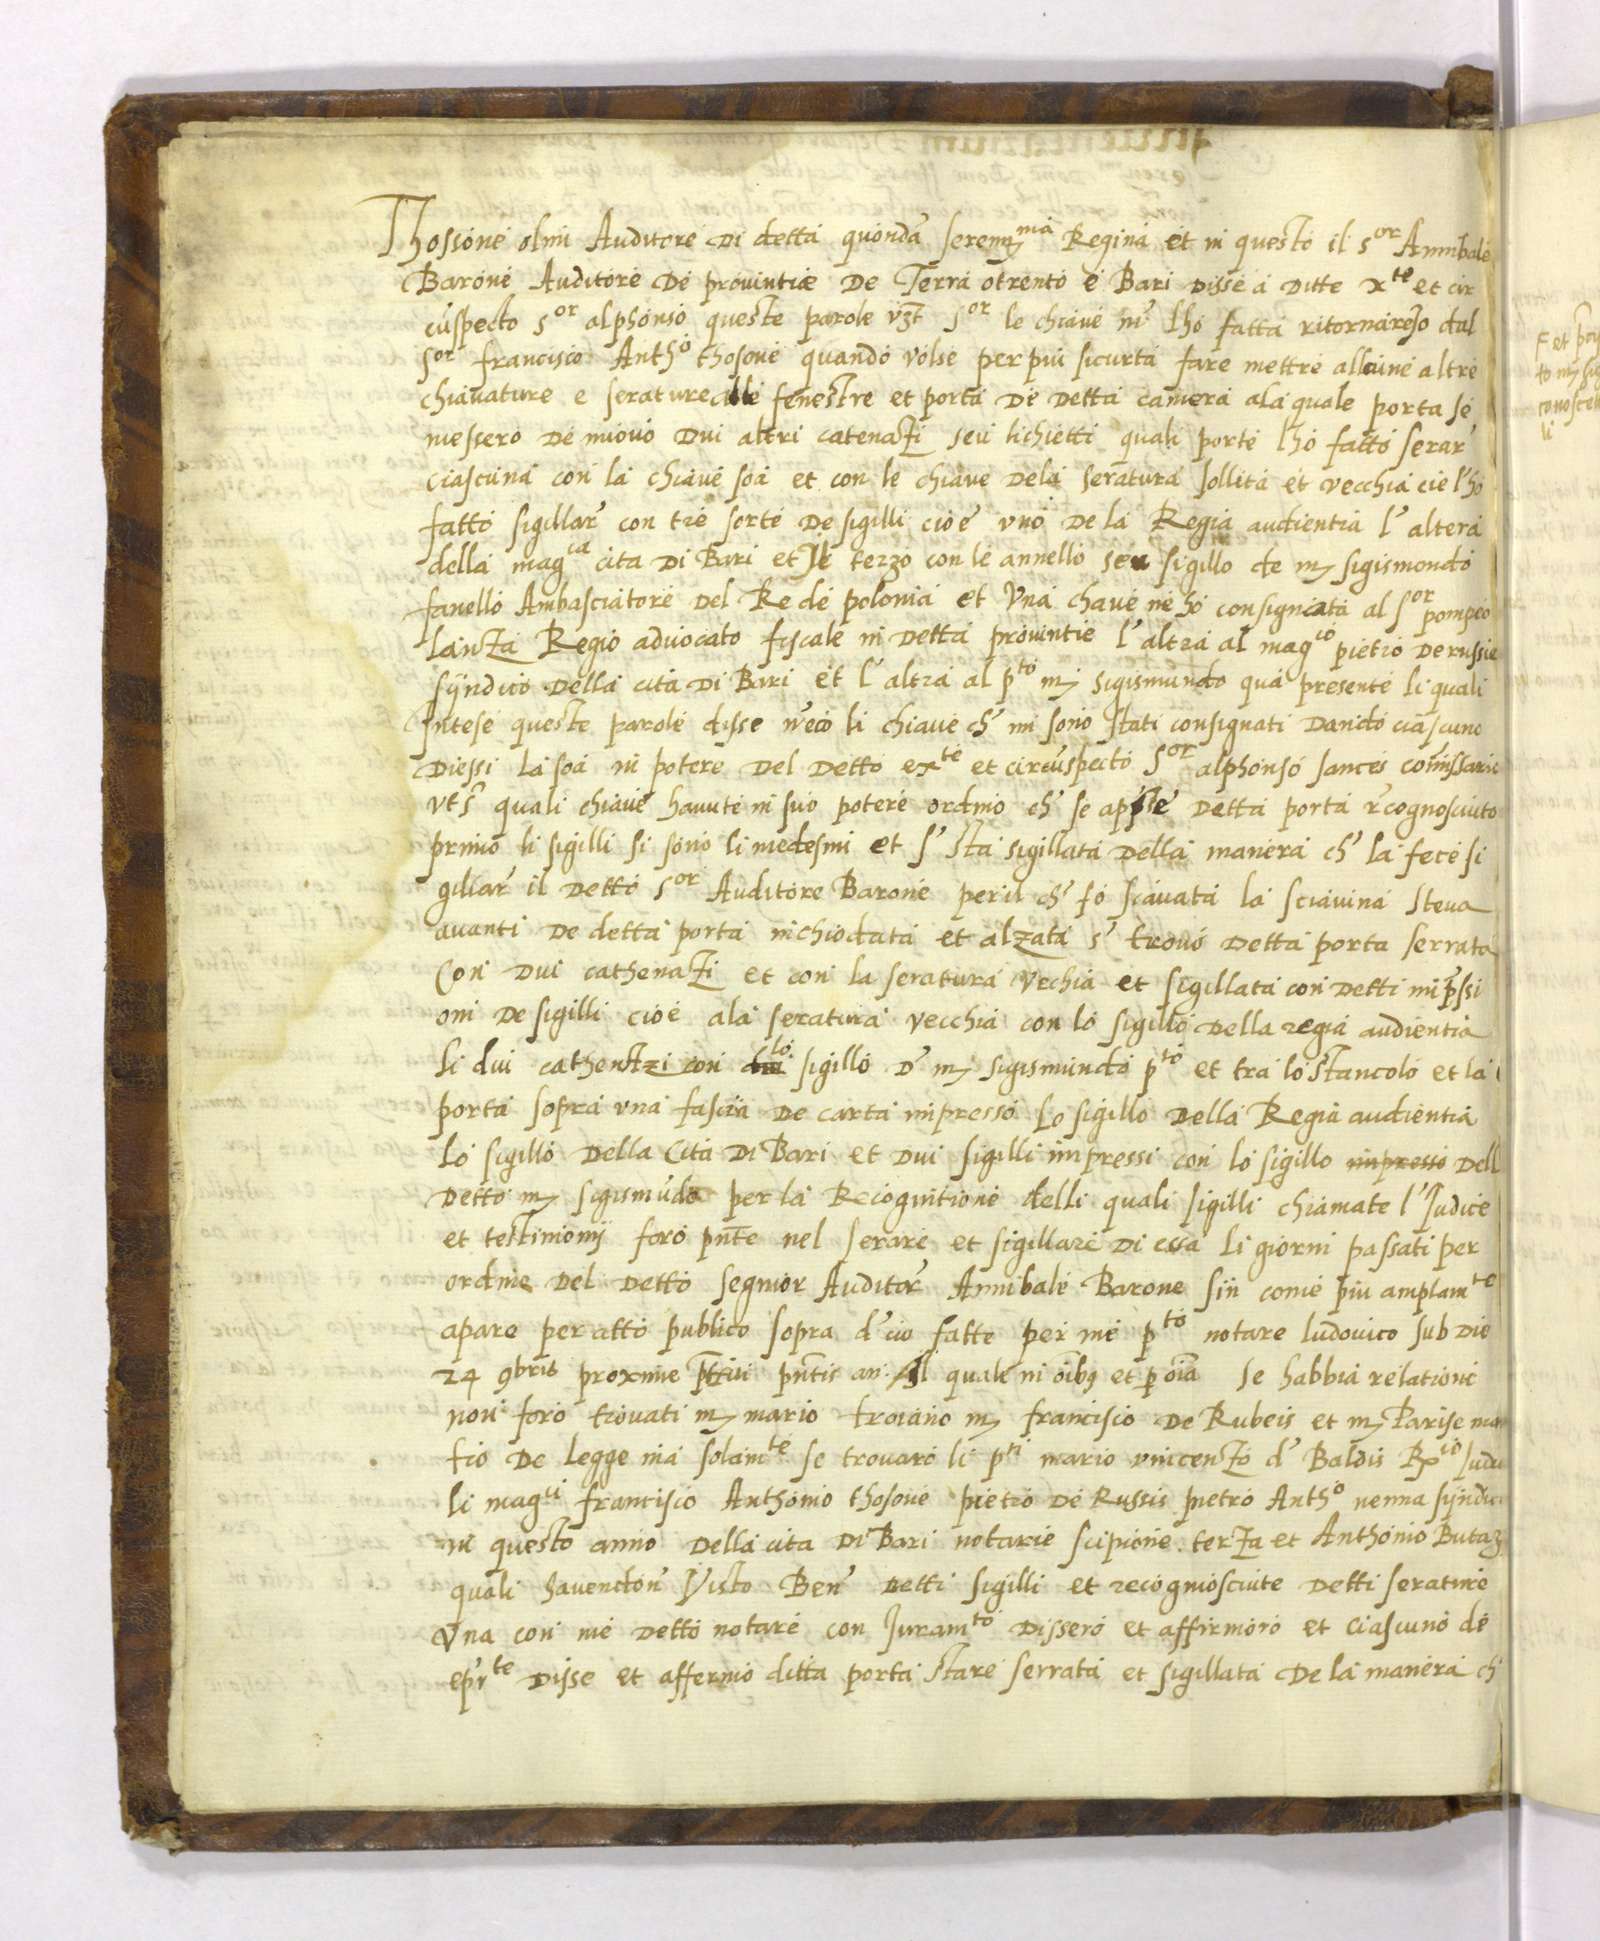 Thossone olmi Auditore di detta quonda serenma Regina et in questo il sor Annibale
Barone Auditore de provintiæ de Terra otrento e Bari disse a ditte xte et cir
cuspecto sor alphonso queste parole vzt sor le chiave me lho fatta ritornare dal
sor francisco Antho thosone quando volse per piu sicurta fare mettre alcune altre
chiavature e serature alle fenestre et porta de detta camera ala quale porta se
messero de niovo dui altri catenazi seu lichietti quali porte l'ho fatto serar
ciascuna con la chiave soa et con le chiave dela seratura sollita et vecchia cie l'ho
fatto sigillar con tre sorte de sigilli cioe uno de la Regia audientia l'altera
della magca cita di Bari et Il terzo con le annello seu sigillo de m sigismondo
fanello Ambasciatore del Re de polonia et Una chave ne ho consignata al sor pompeo
Lanza Regio advocato fiscale in detta provintie l'altra al magco pietro de russis
syndico della cita di Bari et l'altra al pto m sigismundo qua presente li quali
Intese queste parole disse ecco li chiave ch' mi sono stati consignati dando ciascuno
diessi la soa in potere del detto exte et circuspecto Sor alphonso sances comissario
ut s quali chiave havute in suo potere ordino ch' se aprisse detta porta rcognosciuto
primo li sigilli si sono li medesmi et s' sta sigillata della manera ch' la fece si
gillar il detto sor Auditore Barone per il ch' fo sciavata la sciavina steva
avanti de detta porta inchiodata et alzata s' trovo detta porta serrata
Con dui cathenazi et con la seratura vechia et sigillata con detti impssi
oni de sigilli cioe ala seratura vecchia con lo sigillo della regia audientia
li dui cathenazi con lo sigillo d' m sigismundo pto et tra lo stancolo et la
porta sopra una fascia de carta impresso Lo sigillo della Regia audientia
Lo sigillo della Cita di Bari et dui sigilli impressi con lo sigillo impresso dell
detto m sigismudo per la Recognitione delli quali sigilli chiamate l'Iudice
et testimonij foro pnte nel serare et sigillare di essa li giorni passati per
ordine del detto segnior Auditor Annibale Barone sin come piu amplamte
apare per atto publico sopra d' cio fatte per me pto notare ludovico sub die
24 9bris proxime pntis an. Al quale in oibus et p oia se habbia relatione
non foro trovati m mario troiano m francisco de Rubeis et m Parise mar
tio de Legge ma solamte se trovaro li pti mario vincenzo d' Baldis Rio Iudi
li magci francisco Anthonio thosone pietro de Russis pietro Antho nenna syndici
in questo anno della cita di Bari notarie scipione terza et Anthonio Butaz
quali havendon Visto Ben detti sigilli et recogniosciute detti serature
Una con me detto notare con Juramto dissero et affirmoro et ciascuno de
eprte disse et affermo ditta porta stare serrata et sigillata de la manera ch'